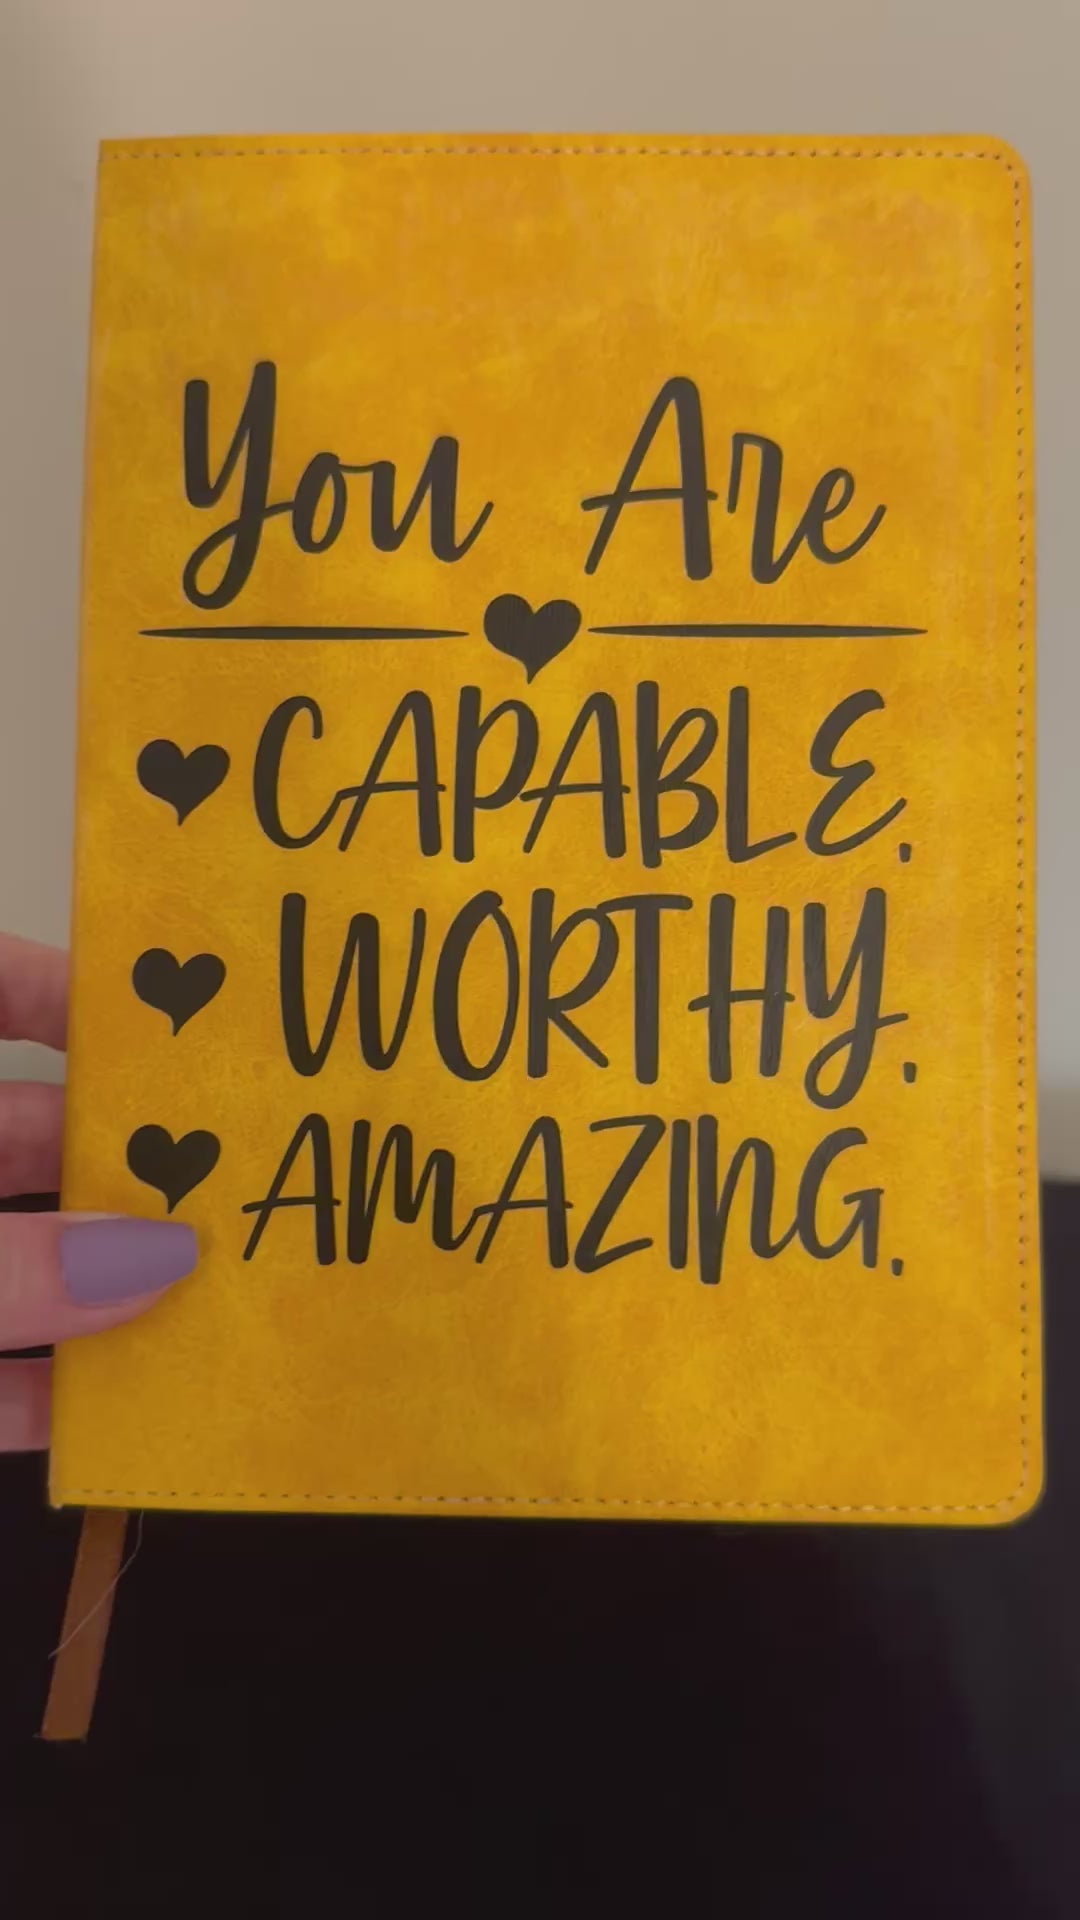 You Are
CAPABLE.
WORTHY.
AMAZING.